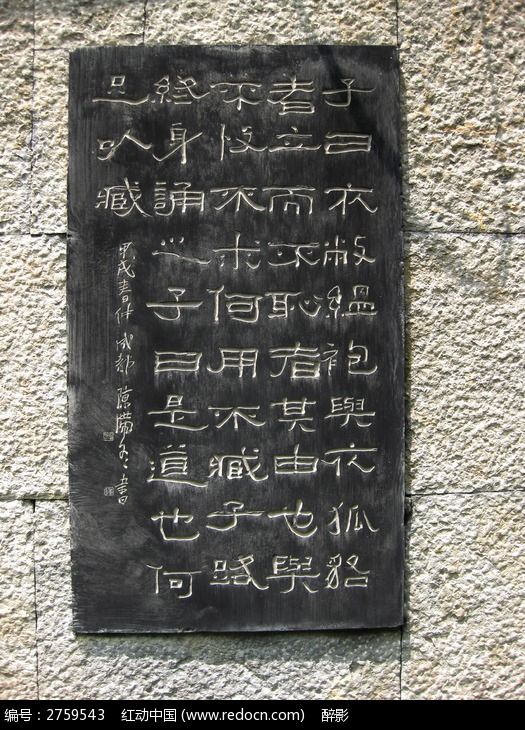 子曰衣敝縕袍與衣狐貉
者立而不恥者其由也與
不忮不求何用不臧子路
終身誦之子曰是道也何
足以臧
甲戌春仲成都陳滯冬書
编号：2759543 红动中国 (www.redocn.com) 醉影